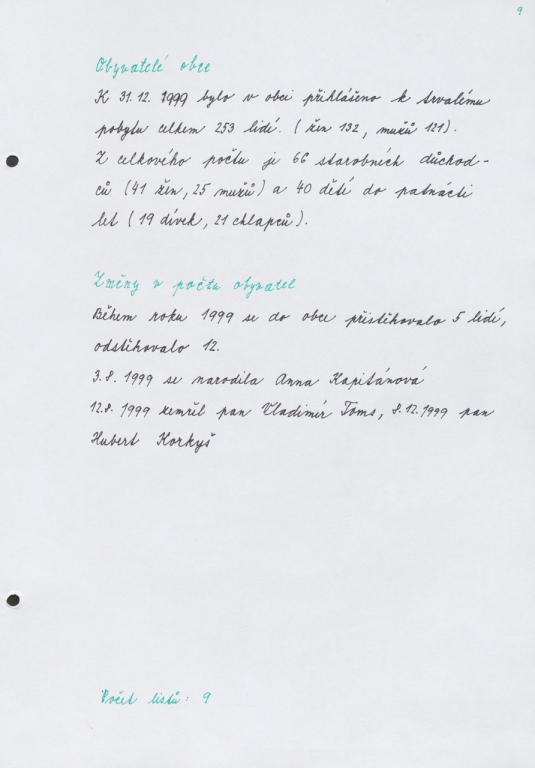 9
Obyvatelé obce
K 31.12. 1999 bylo v obci přihlášeno k trvalému
pobytu celkem 253 lidí. (žen 132, mužů 121).
Z celkového počtu je 66 starobních důchod-
ců (41 žen, 25 mužů) a 40 dětí do patnácti
let (19 dívek, 21 chlapců).
Změny v počtu obyvatel
Během roku 1999 se do obce přistěhovalo 5 lidí,
odstěhovalo 12.
3.8. 1999 se narodila Anna Kapitánová
12.8. 1999 zemřel pan Vladimír Toms, 8.12.1999 pan
Hubert Korkyš
Počet listů: 9